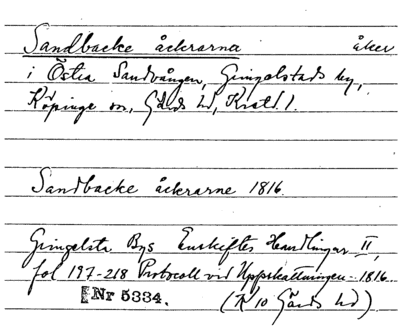 Sandbacke åkrarna åker
i Östra Sandvången, Gringelstads by,
Köpinge sn, Gärds hd, Krist. l.
Sandbacke åckrarne 1816
Gringelsta Bys Enskiftes Handlingar II,
fol 197-218 Protocoll vid Uppskattningen 1816
Nr 5334. (K 10 Gärds hd)